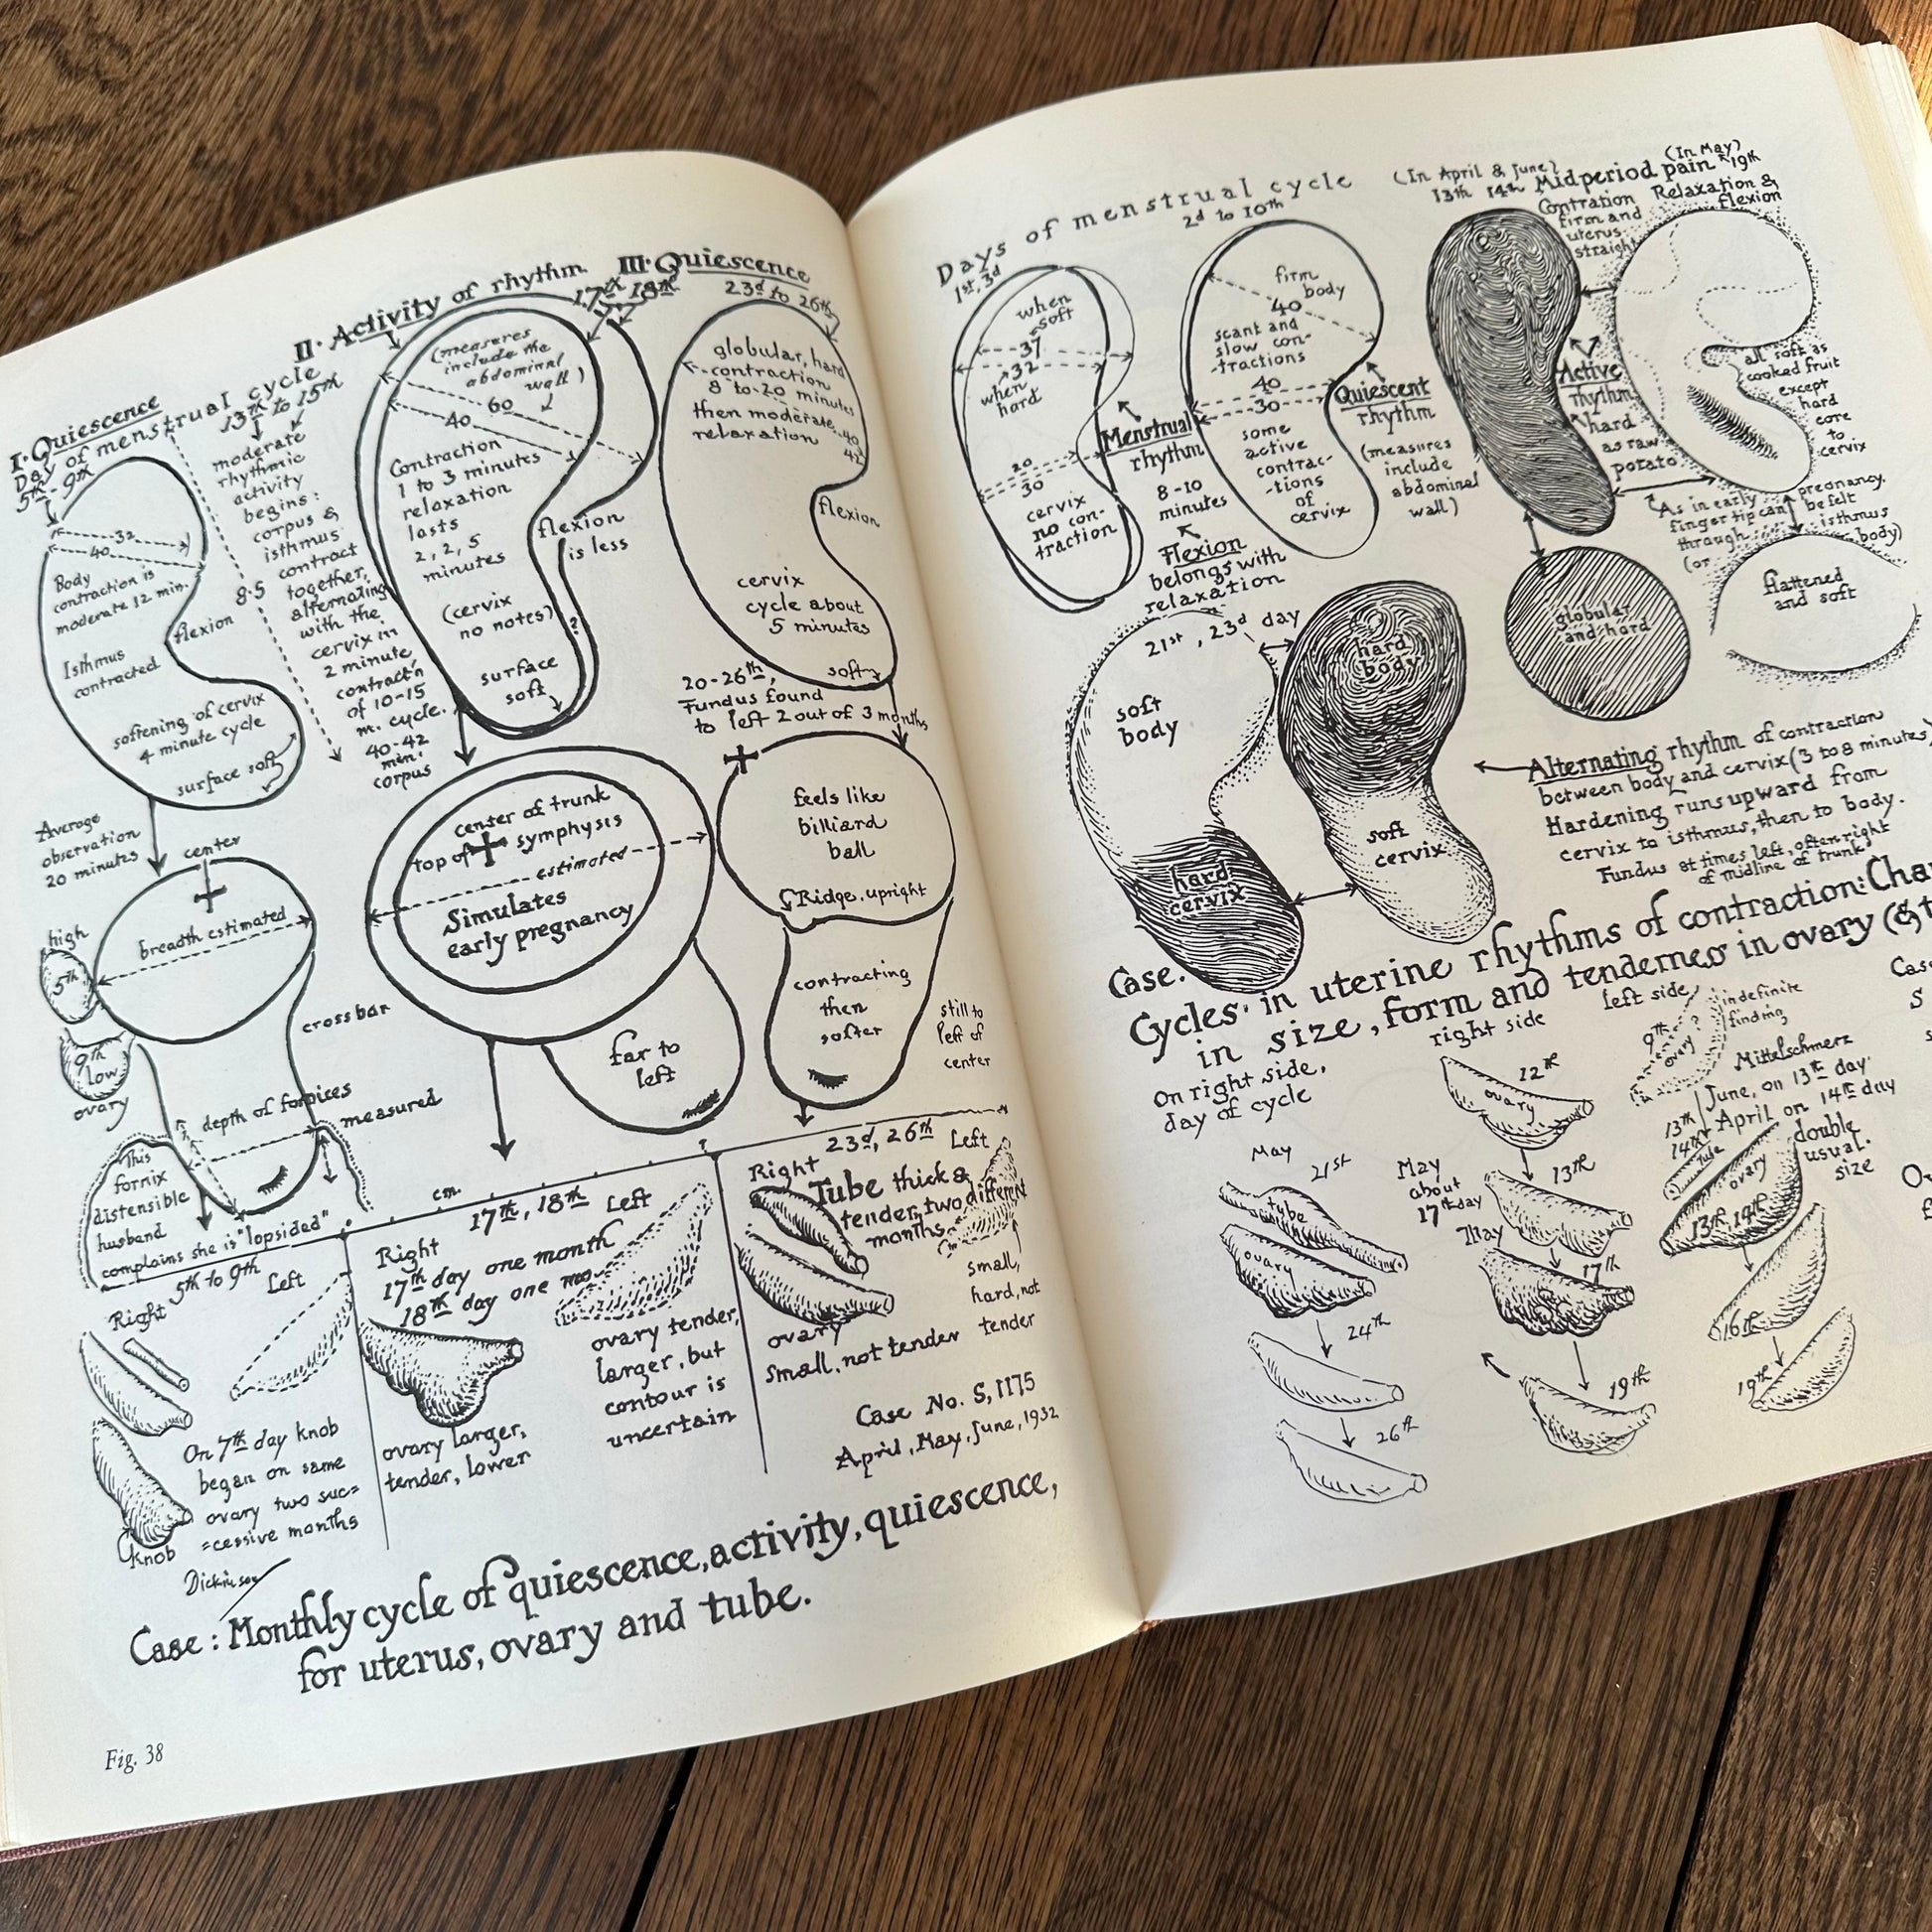 I. Quiescence
Day of menstrual cycle
5th-9th
32
40
Body
contraction is
moderate 12 min.
flexion
Isthmus
contracted
softening of cervix
4 minute cycle
surface soft
II. Activity of rhythm
13th to 15th
moderate
rhythmic
activity
begins:
corpus &
isthmus
contract
together,
alternating
with the
cervix in
2 minute
contract'n
of 10-15
m. cycle.
40-42
men.
corpus
8.5
17th 18th
(measures
include the
abdominal
wall)
60
40
Contraction
1 to 3 minutes
relaxation
lasts
2, 2, 5
minutes
flexion
is less
(cervix
no notes)
?
surface
soft
III. Quiescence
23d to 26th
globular, hard
contraction
8 to 20 minutes
then moderate
relaxation
40
42
flexion
cervix
cycle about
5 minutes
soft
20-26th,
Fundus found
to left 2 out of 3 months
Average
observation
20 minutes
center
high
5th
breadth estimated
9th
low
ovary
crossbar
depth of fornices
measured
This
fornix
distensible
husband
complains she is "lopsided"
center of trunk
top of symphysis
estimated
Simulates
early pregnancy
far to
left
feels like
billiard
ball
Ridge, upright
contracting
then
softer
still to
left of
center
cm.
5th to 9th
Right
Left
On 7th day knob
began on same
ovary two suc=
=cessive months
knob
Dickinson
17th, 18th Left
Right
17th day one month
18th day one mo.
ovary larger,
tender, lower
ovary tender,
larger, but
contour is
uncertain
23d, 26th Left
Right
Tube thick &
tender, two different
months
ovary
small, not tender
small,
hard, not
tender
Case No. S, 1175
April, May, June, 1932
Case: Monthly cycle of quiescence, activity, quiescence,
for uterus, ovary and tube.
Fig. 38
Days of menstrual cycle
1st, 3d
when
soft
37
32
when
hard
20
30
cervix
no con-
traction
Menstrual
rhythm
8-10
minutes
Flexion
belongs with
relaxation
2d to 10th
firm
body
40
scant and
slow con-
-tractions
40
30
some
active
contrac-
-tions
of
cervix
Quiescent
rhythm
(measures
include
abdominal
wall)
(In April & June)
13th 14th Midperiod pain
(In May)
19th
Contration
firm and
uterus
straight
Relaxation &
flexion
Active
rhythm
hard
as raw
potato
all soft as
cooked fruit
except
hard
core
to
cervix
As in early pregnancy,
finger tip can be felt
through isthmus
(or body)
globular
and hard
flattened
and soft
21st, 23d day
soft
body
hard
cervix
hard
body
soft
cervix
Alternating rhythm of contraction
between body and cervix (3 to 8 minutes)
Hardening runs upward from
cervix to isthmus, then to body.
Fundus at times left, often right
of midline of trunk
Case.
Cycles in uterine rhythms of contraction:
in size, form and tenderness in ovary (&
On right side,
day of cycle
May
21st
tube
ovary
24th
26th
right side
12th
ovary
13th
May
about
17th day
May
17th
19th
left side
9th
ovary
?
indefinite
finding
Mittelschmerz
June, on 13th day
April on 14th day
13th
14th
tube
ovary
13th, 14th
double
usual
size
16th
19th